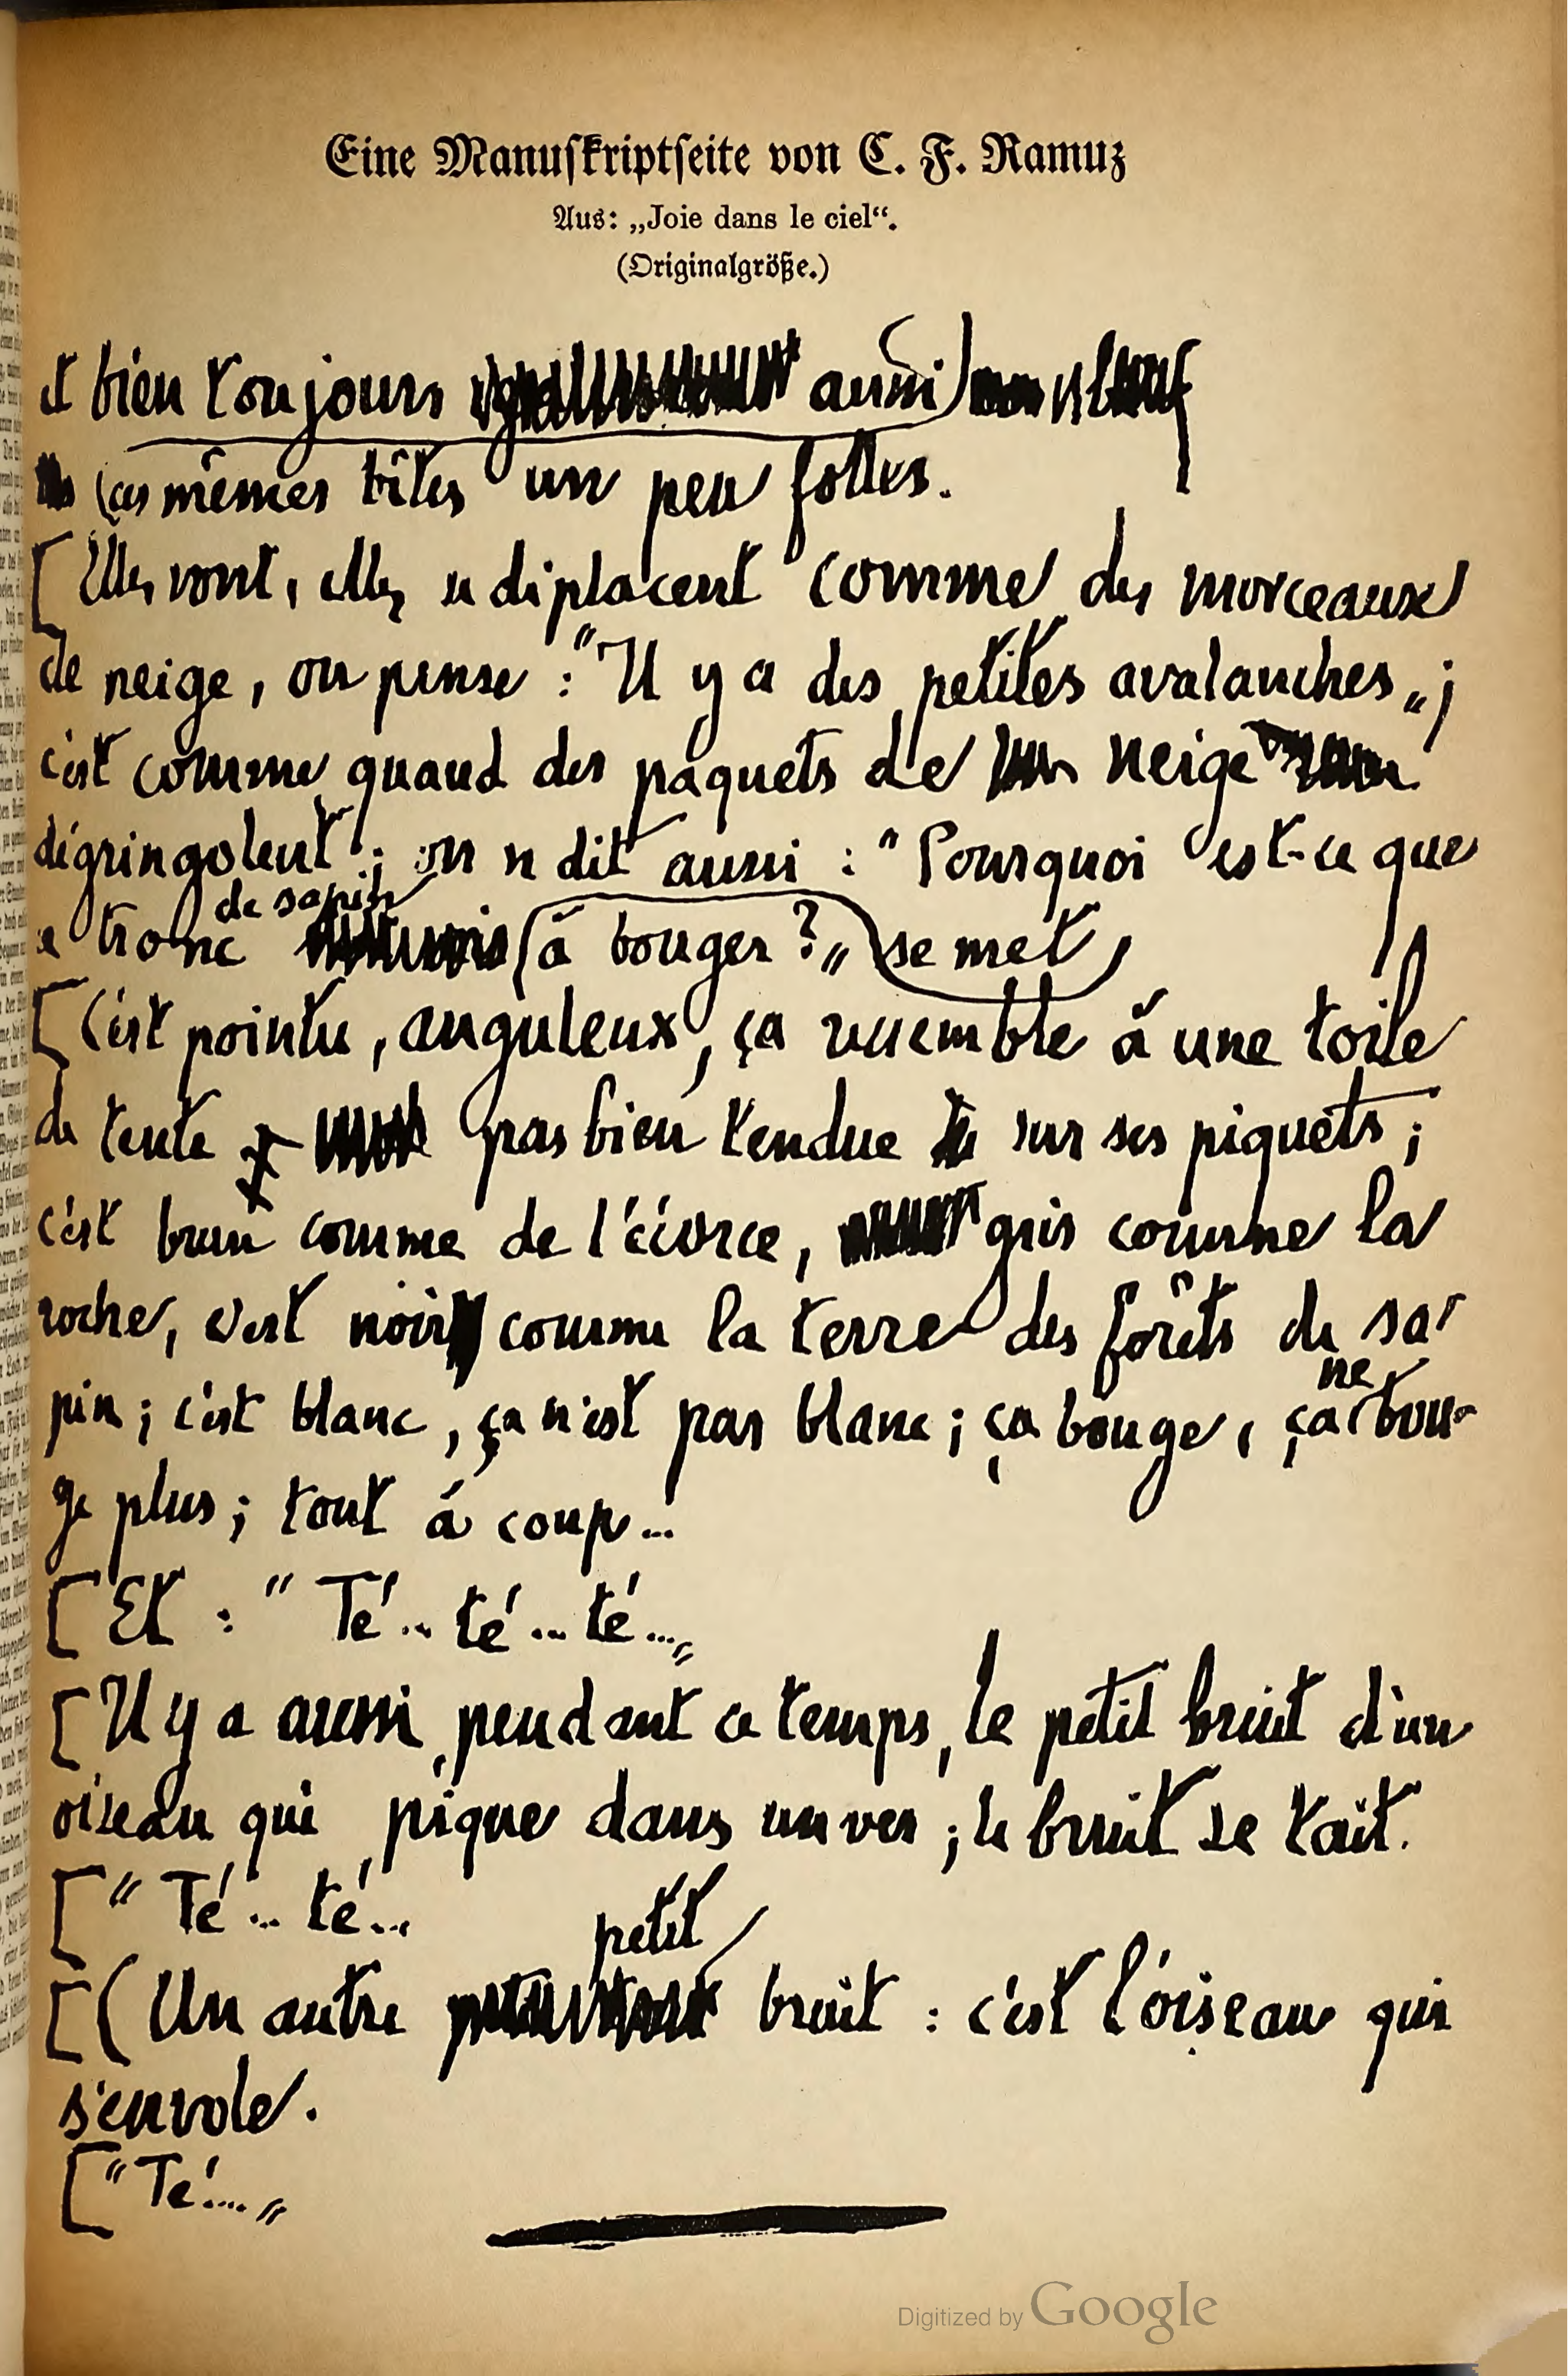 Eine Manuskriptseite von C. F. Ramuz
Aus: „Joie dans le ciel“.
(Originalgröße.)
et bien toujours aussi
ces mêmes bêtes un peu folles.
[Elles vont, elles se déplacent comme des morceaux
de neige, on pense : "Il y a des petites avalanches„;
c'est comme quand des paquets de neige
dégringolent ; on se dit aussi : "Pourquoi est-ce que
de sapin
ce tronc à bouger ?„ se met
[C'est pointu, anguleux, ça ressemble à une toile
de tente pas bien tendue sur ses piquets ;
c'est brun comme de l'écorce, gris comme la
roche, c'est noir comme la terre des forêts de sa-
ne
pin ; c'est blanc, ça n'est pas blanc ; ça bouge, ça bou-
ge plus ; tout à coup...
[Et : "Té... té... té...„
[Il y a aussi, pendant ce temps, le petit bruit d'un
oiseau qui pique dans un ver ; le bruit se tait.
["Té... té...
petit
[(Un autre bruit : c'est l'oiseau qui
s'envole.
["Té....„
Digitized by Google